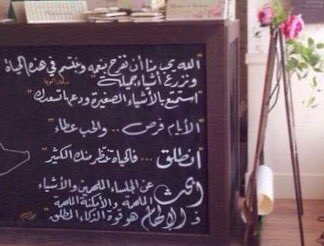 "الله يحب منا أن نفرح بنعمه ونبتسم في هذه الحياة
ونزرع أشياء جميلة"
"استمتع بالأشياء الصغيرة ودعها تسعدك"
"الأيام فرص ... والحب عطاء"
"انطلق ... فالحياة تنتظر منك الكثير"
ابحث عن الجلساء الملهمين والأشياء
الملهمة والأمكنة الملهمة
فـ الإلهام هو قوة الذكاء المطلق"